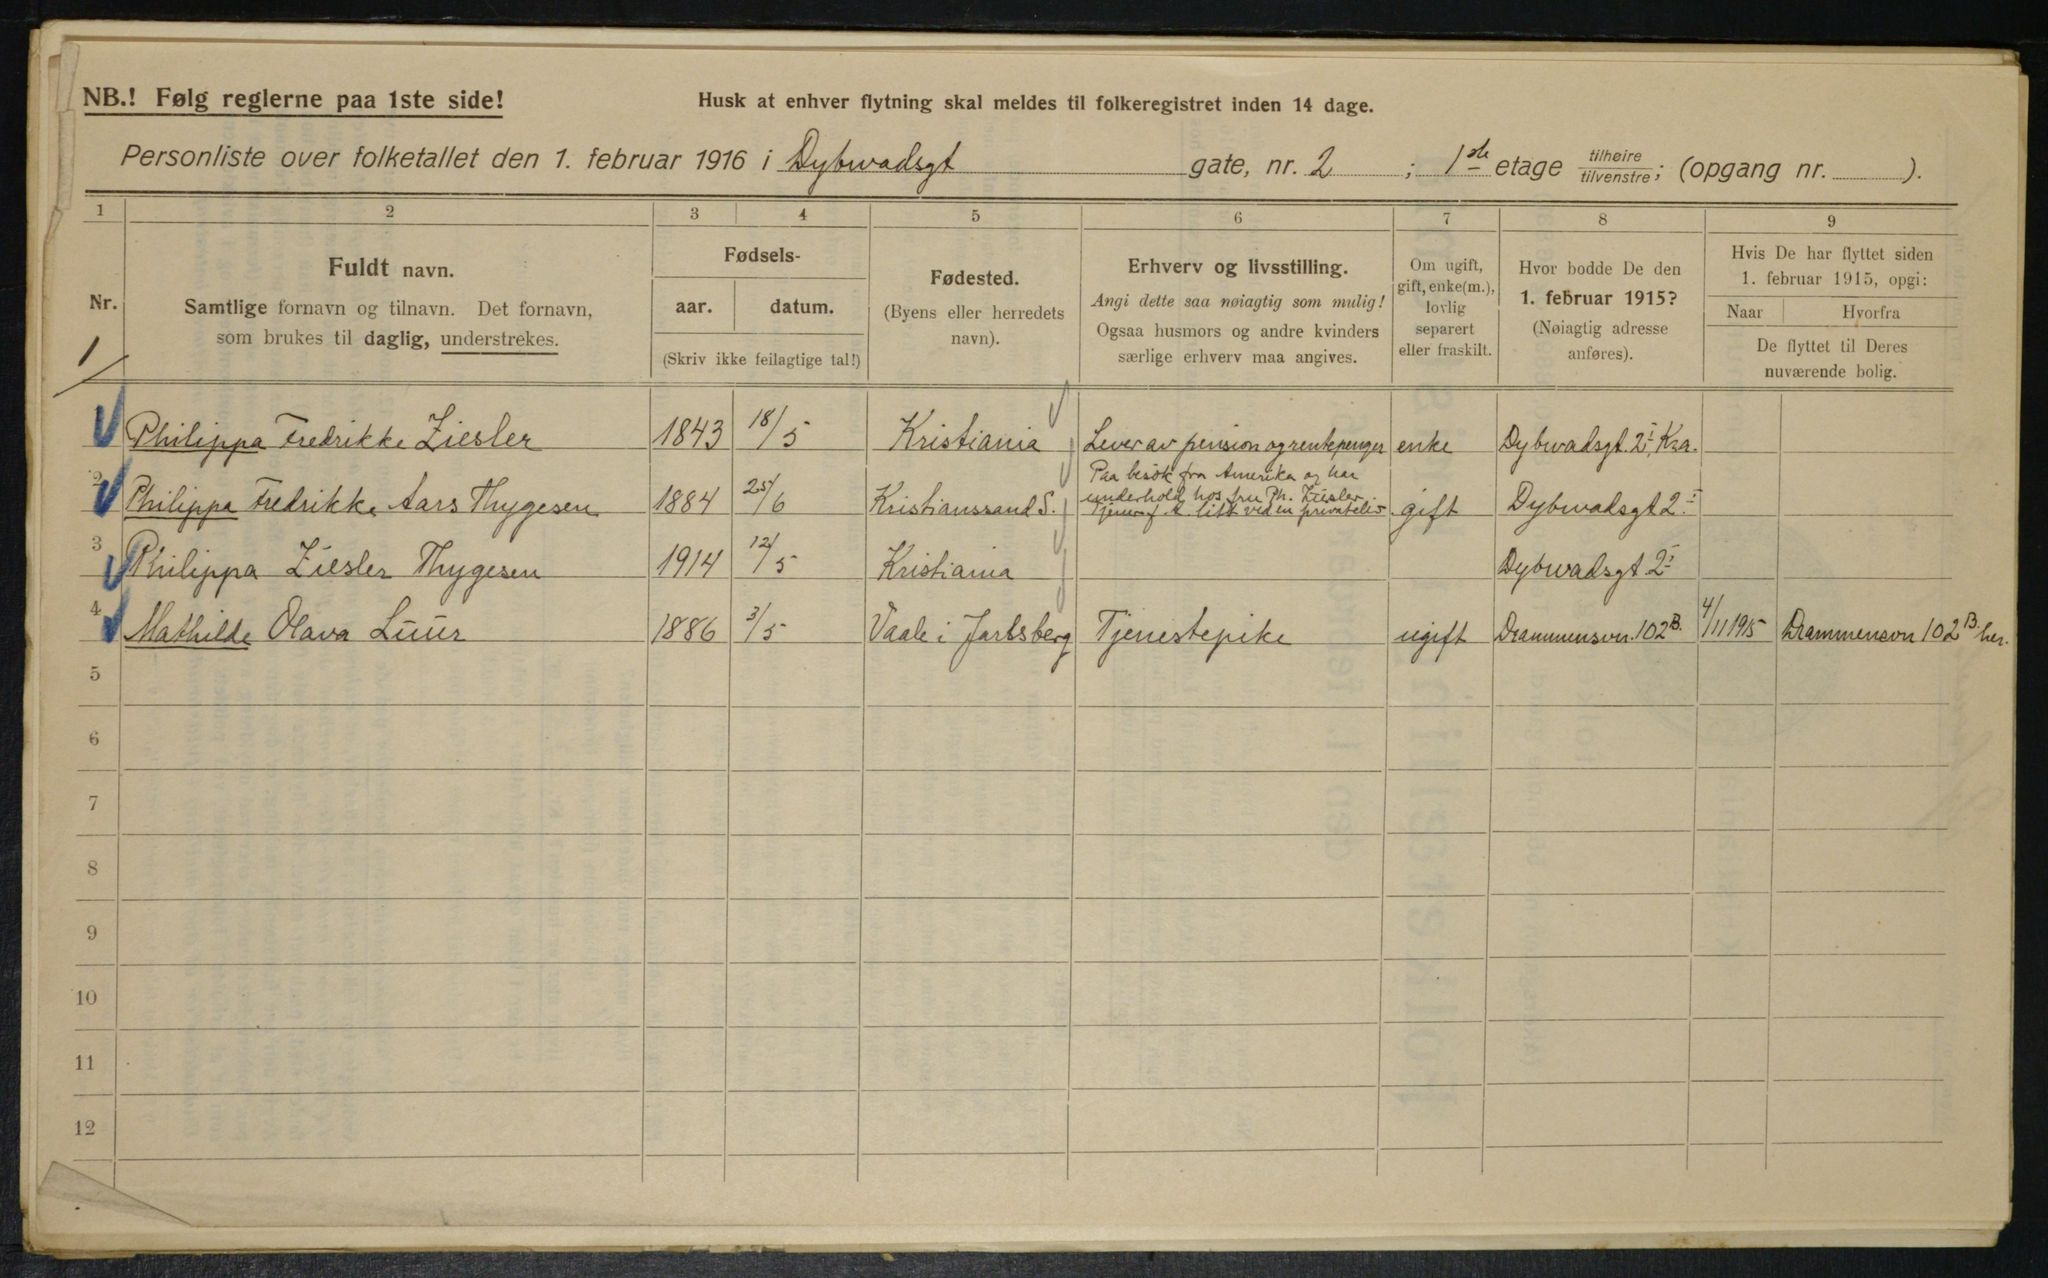 NB.! Følg reglerne paa 1ste side!
Husk at enhver flytning skal meldes til folkeregistret inden 14 dage.
Personliste over folketallet den 1. februar 1916 i Dybwadsgt gate, nr. 2 ; 1ste etage tilhøire tilvenstre; (opgang nr. ).
1 2 3 4 5 6 7 8 9
Nr.
Fuldt navn.
Samtlige fornavn og tilnavn. Det fornavn,
som brukes til daglig, understrekes.
Fødsels-
aar. datum.
(Skriv ikke feilagtige tal!)
Fødested.
(Byens eller herredets
navn).
Erhverv og livsstilling.
Angi dette saa nøiagtig som mulig!
Ogsaa husmors og andre kvinders
særlige erhverv maa angives.
Om ugift,
gift, enke(m.),
lovlig
separert
eller fraskilt.
Hvor bodde De den
1. februar 1915?
(Nøiagtig adresse
anføres).
Hvis De har flyttet siden
1. februar 1915, opgi:
Naar Hvorfra
De flyttet til Deres
nuværende bolig.
1 Philippa Fredrikke Ziesler 1843 18/5 Kristiania Lever av pension og rentepenger enke Dybwadsgt. 2 I, Kra.
2 Philippa Fredrikke Aars Thygesen 1884 25/6 Kristianssand S. Paa besøk fra Amerika og har
underhold hos fru Ph. Ziesler
litt ved en gift Dybwadsgt 2 I
3 Philippa Ziesler Thygesen 1914 12/5 Kristiania Dybwadsgt. 2 I
4 Mathilde Olava Luur 1886 3/5 Vaale i Jarlsberg Tjenestepike ugift Drammensvn. 102 B. 4/11 1915 Drammensvn 102 B. her.
5
6
7
8
9
10
11
12